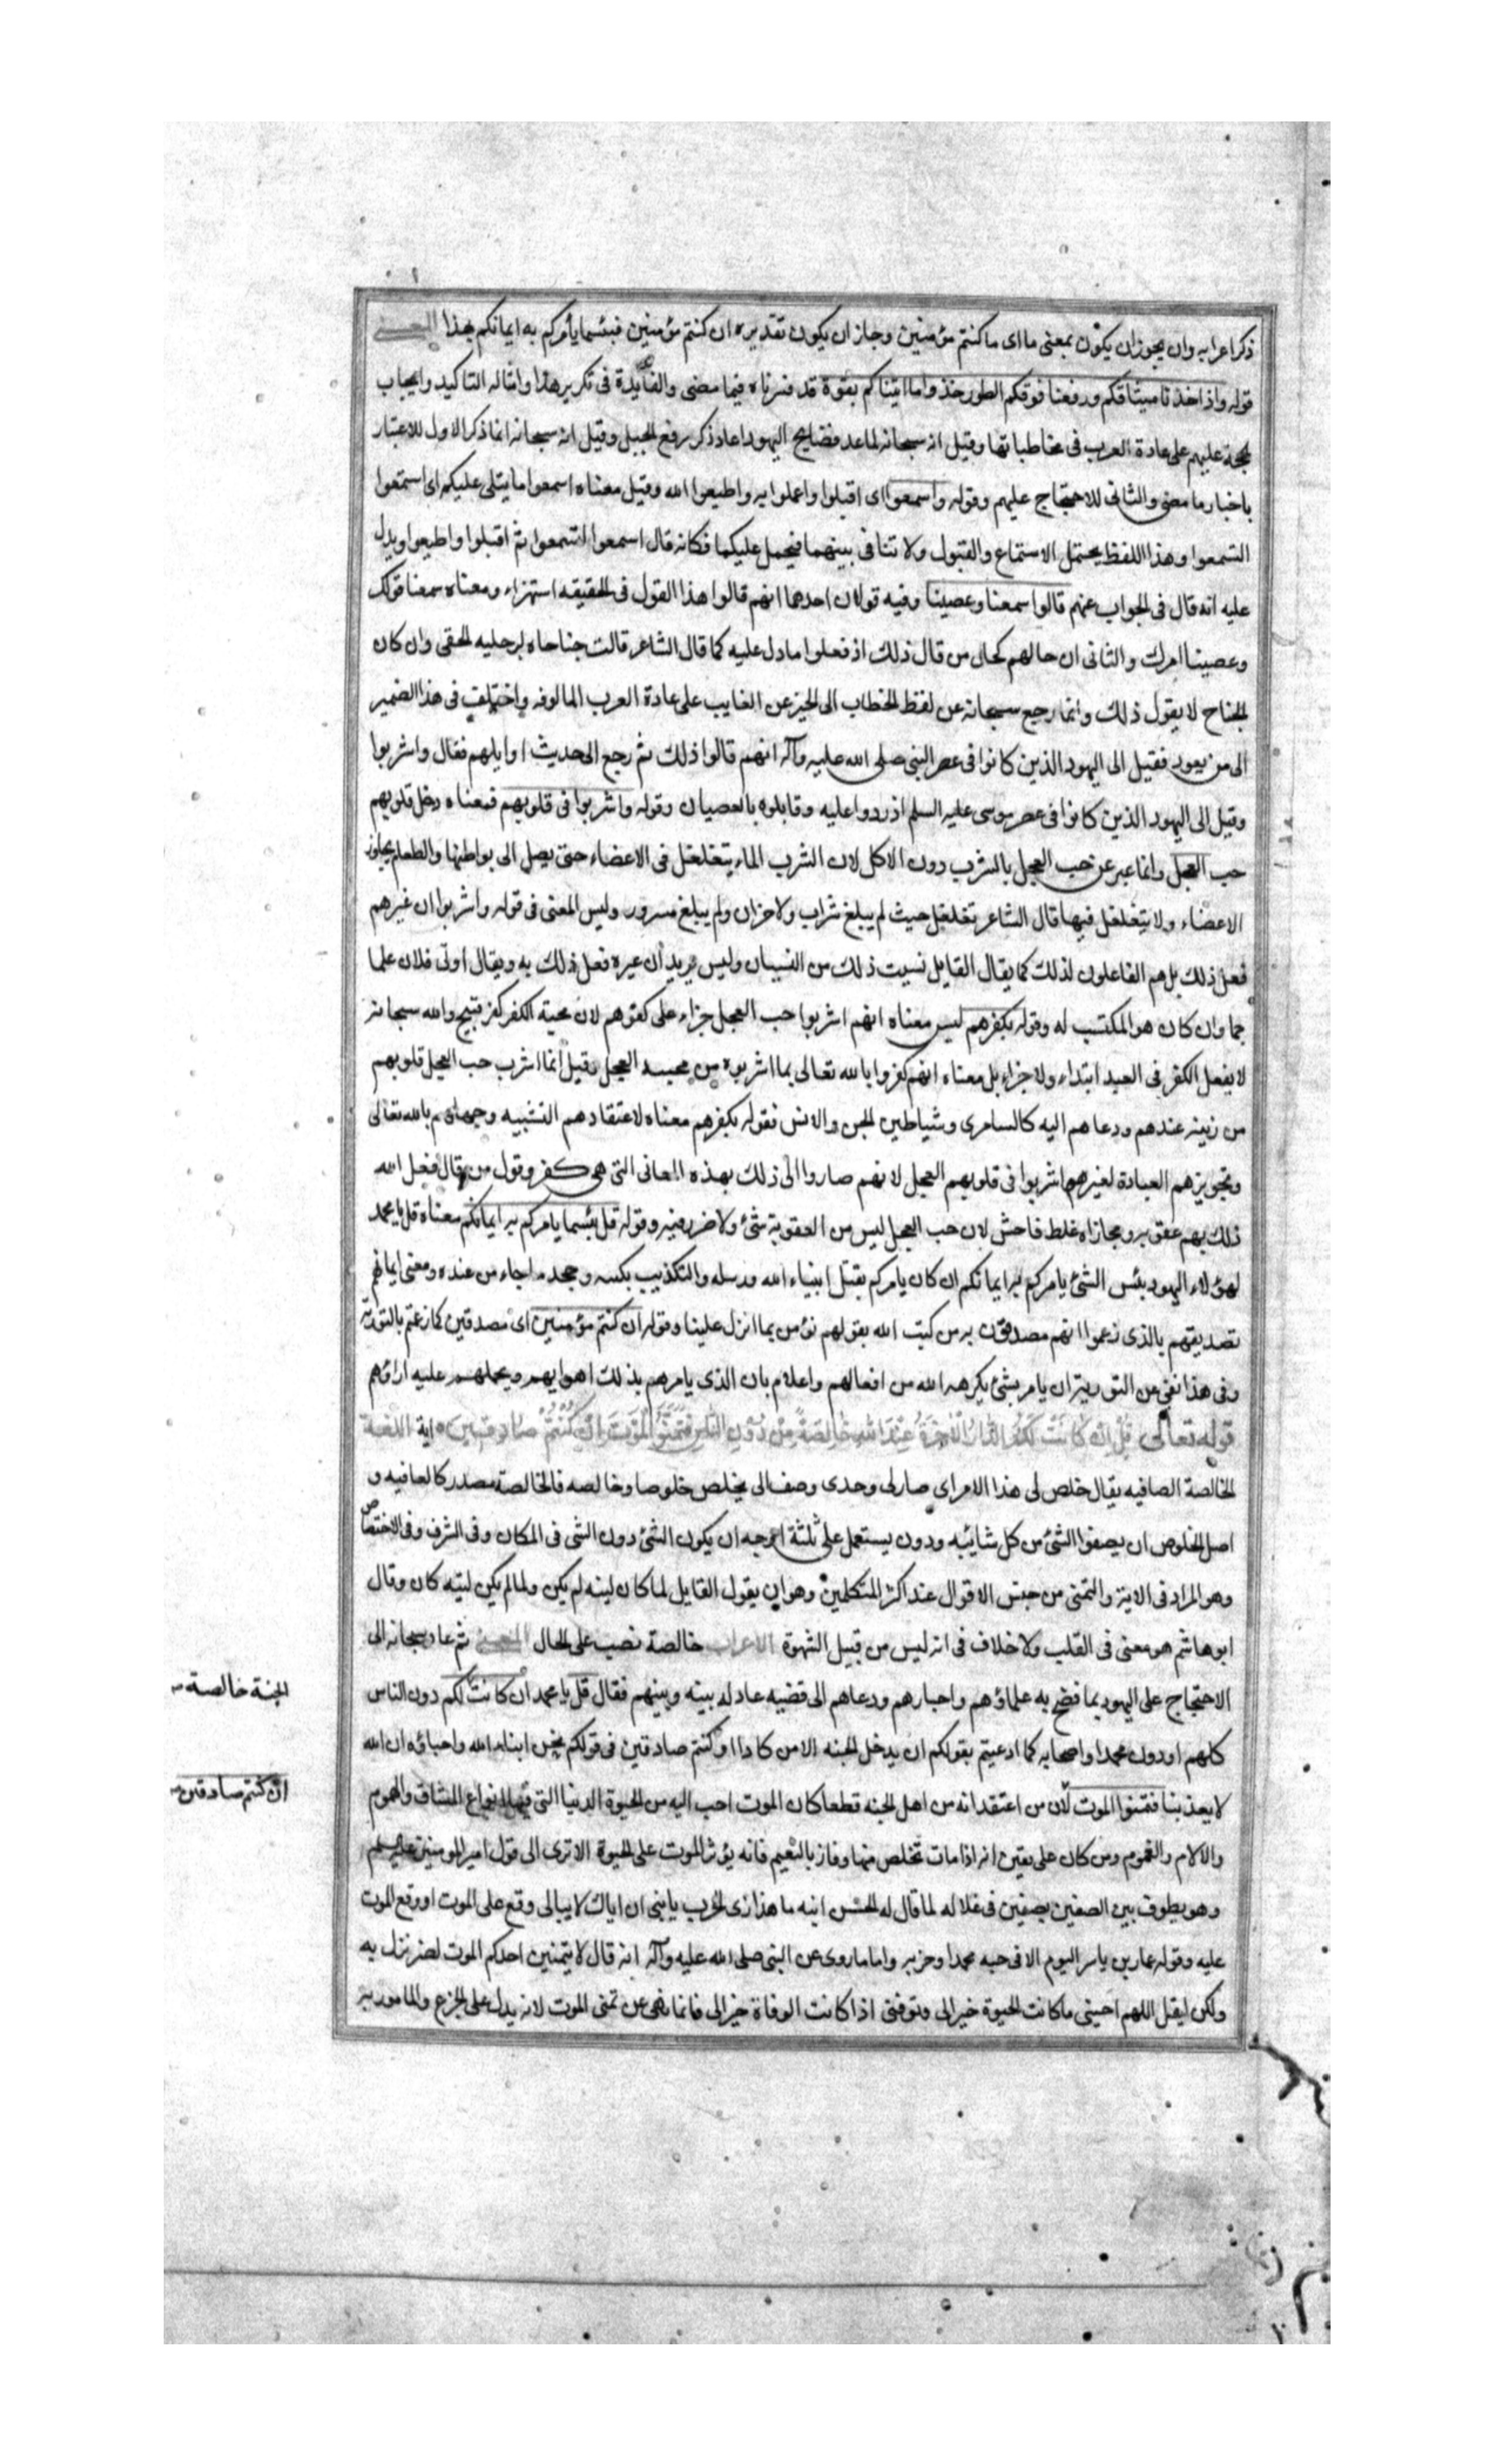 ذكر اعرابه وان يجوز ان يكون بمعنى ما اى ما كنتم مؤمنين وجاز ان يكون تقديره ان كنتم مؤمنين فبئسما يأمركم به ايمانكم بهذا المعنى
قوله واذ اخذنا ميثاقكم ورفعنا فوقكم الطور خذوا ما اتيناكم بقوة قد فسرناه فيما مضى والفايدة فى تكرير هذا وامثاله التاكيد وايجاب
لحجة عليهم على عادة العرب فى مخاطباتها وقيل انه سبحانه لما عد فضايح اليهود اعاد ذكر رفع الجبل وقيل انه سبحانه انما ذكر الاول للاعتبار
باخبار ما مضى والثانى للاحتجاج عليهم وقوله واسمعوا اى اقبلوا واعملوا به واطيعوا الله وقيل معناه اسمعوا ما يتلى عليكم اى استمعوا
التسمعوا وهذا اللفظ يحتمل الاستماع والقبول ولا تنافى بينهما فيحمل عليكما فكانه قال اسمعوا لتسمعوا ثم اقبلوا واطيعوا ويدل
عليه انه قال فى الجواب عنهم قالوا سمعنا وعصينا وفيه قولان احدهما انهم قالوا هذا القول فى الحقيقه استهزاء ومعناه سمعنا قولك
وعصينا امرك والثانى ان حالهم كحال من قال ذلك اذ فعلوا ما دل عليه كما قال الشاعر قالت جناحاه لرجليه الحقى وان كان
الجناح لا يقول ذلك وانما رجع سبحانه عن لفظ الخطاب الى الخبر عن الغايب على عادة العرب المالوفه واختلف فى هذا الضمير
الى من يعود فقيل الى اليهود الذين كانوا فى عصر النبى صلى الله عليه وآله انهم قالوا ذلك ثم رجع الى حديث اوايلهم فقال واشربوا
وقيل الى اليهود الذين كانوا فى عصر موسى عليه السلم اذ ردوا عليه وقابلوه بالعصيان وقوله واشربوا فى قلوبهم فمعناه دخل قلوبهم
حب العجل وانما عبر عن حب العجل بالشرب دون الاكل لان الشرب الماء يتغلغل فى الاعضاء حتى يصل الى بواطنها والطعام يجاوز
الاعضاء ولا يتغلغل فيها قال الشاعر تغلغل حيث لم يبلغ شراب ولا حزن ولم يبلغ سرور وليس المعنى فى قوله واشربوا ان غيرهم
فعل ذلك بل هم الفاعلون لذلك كما يقال القايل نسيت ذلك من النسيان وليس يريد ان غيره فعل ذلك به ويقال اوتى فلان علما
جما وان كان هو المكتسب له وقوله بكفرهم ليس معناه انهم اشربوا حب العجل جزاء على كفرهم لان محبة الكفر كفر قبيح والله سبحانه
لا يفعل الكفر فى العبد ابتداء ولا جزاء بل معناه انهم كفروا بالله تعالى بما اشربوه من محبه العجل وقيل انما اشرب حب العجل قلوبهم
من زينه عندهم ودعاهم اليه كالسامرى وشياطين الجن والانس فقوله بكفرهم معناه لاعتقادهم التشبيه وجهلهم بالله تعالى
وتجويزهم العبادة لغيره اشربوا فى قلوبهم العجل لانهم صاروا الى ذلك بهذه المعانى التى هى كفر وقول من قال فعل الله
ذلك بهم عقوبه ومجازاه غلط فاحش لان حب العجل ليس من العقوبة شئ ولا ضرر فيه وقوله قل بئسما يامركم به ايمانكم معناه قل يا محمد
لهؤلاء اليهود بئس الشئ يامركم به ايمانكم ان كان يامركم بقتل انبياء الله ورسله والتكذيب بكتبه وجحد ما جاء من عنده ومعنى ايمانهم
تصديقهم بالذى زعموا انهم مصدقون به من كتب الله بقولهم نؤمن بما انزل علينا وقوله ان كنتم مؤمنين اى مصدقين كما زعتم بالتورية
وفى هذا نفى عن التورية ان يامر بشئ يكرهه الله من افعالهم واعلام بان الذى يامرهم بذلك اهوايهم ويحملهم عليه اراؤهم
قوله تعالى قُلْ اِنْ كَانَتْ لَكُمُ الدَّارُ الْاٰخِرَةُ عِنْدَ اللهِ خَالِصَةً مِنْ دُونِ النَّاسِ فَتَمَنَّوُا الْمَوْتَ اِنْ كُنْتُمْ صَادِقِينَ اية اللغة
الخالصة الصافيه يقال خلص لى هذا الامر اى صار لى وحدى وصفا لى يخلص خلوصا وخالصه فالخالصة مصدر كالعافيه و
اصل الخلوص ان يصفوا الشئ من كل شائبه ودون يستعمل على ثلثة اوجه ان يكون الشئ دون الشى فى المكان وفى الشرف وفى الاختصاص
وهو المراد فى الاية والتمنى من جنس الاقوال عند اكثر المتكلمين وهو ان يقول القايل لما كان ليته لم يكن ولما لم يكن ليته كان وقال
ابو هاشم هو معنى فى القلب ولا خلاف فى انه ليس من قبيل الشهوة الاعراب خالصة نصب على الحال المعنى ثم عاد سبحانه الى
الاحتجاج على اليهود بما فضح به علماؤهم واحبارهم ودعاهم الى قضيه عادله بينه وبينهم فقال قل يا محمد ان كانت لكم دون الناس
الجنة خالصة
كلهم او دون محمدا واصحابه كما ادعيتم بقولكم ان يدخل الجنه الا من كان هودا او كنتم صادقين فى قولكم نحن ابناء الله واحباؤه ان الله
لا يعذبنا فتمنوا الموت لان من اعتقد انه من اهل الجنه قطعا كان الموت احب اليه من الحيوة الدنيا التى فيها انواع المشاق والهموم
ان كنتم صادقين
والالام والغموم ومن كان على يقين انه اذا مات تخلص منها وفاز بالنعيم فانه يؤثر الموت على الحيوة الا ترى الى قول امير المومنين عليه السلم
وهو يطوف بين الصفين بصفين فى غلاله لما قال له الحسن ابنه ما هذا زى الحرب يا بنى ان اباك لا يبالى وقع على الموت او وقع الموت
عليه وقوله عمار بن ياسر اليوم الاقى حبه محمدا وحزبه واما ما روى عن النبى صلى الله عليه وآله انه قال لا يتمنين احدكم الموت لضر نزل به
ولكن ليقل اللهم احينى ما كانت الحيوة خيرا لى وتوفنى اذا كانت الوفاة خيرا لى فانما نهى عن تمنى الموت لانه يدل على الجزع والمامور به